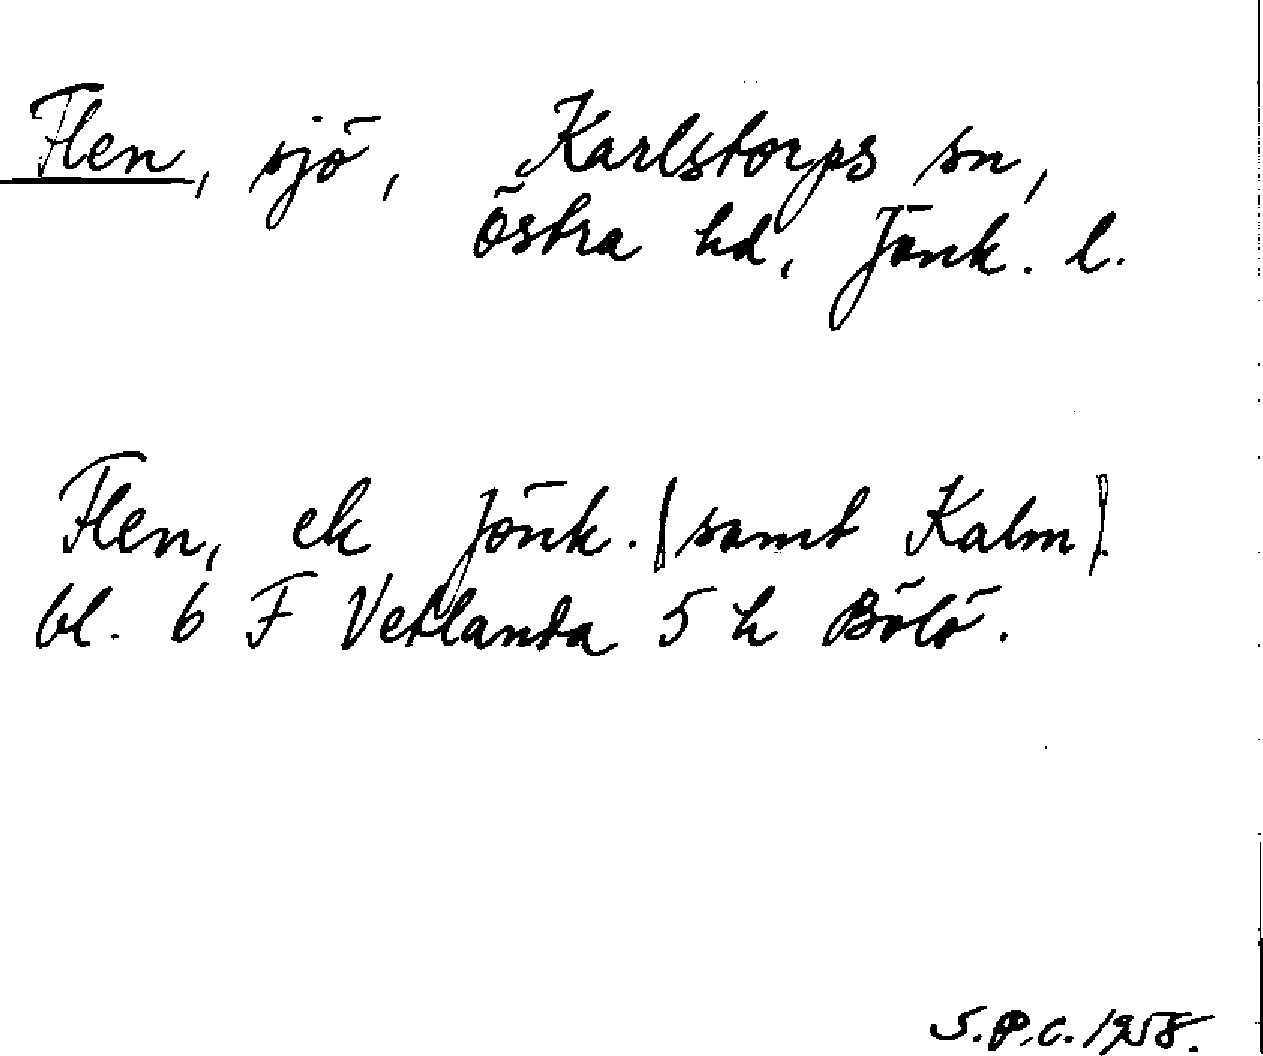 Flen, sjö, Karlstorps sn,
Östra hd, Jönk. l.
Flen, ek Jönk. (samt Kalm).
bl. 6 F Vetlanda 5 h Bölö.
S.P.C. 1958.